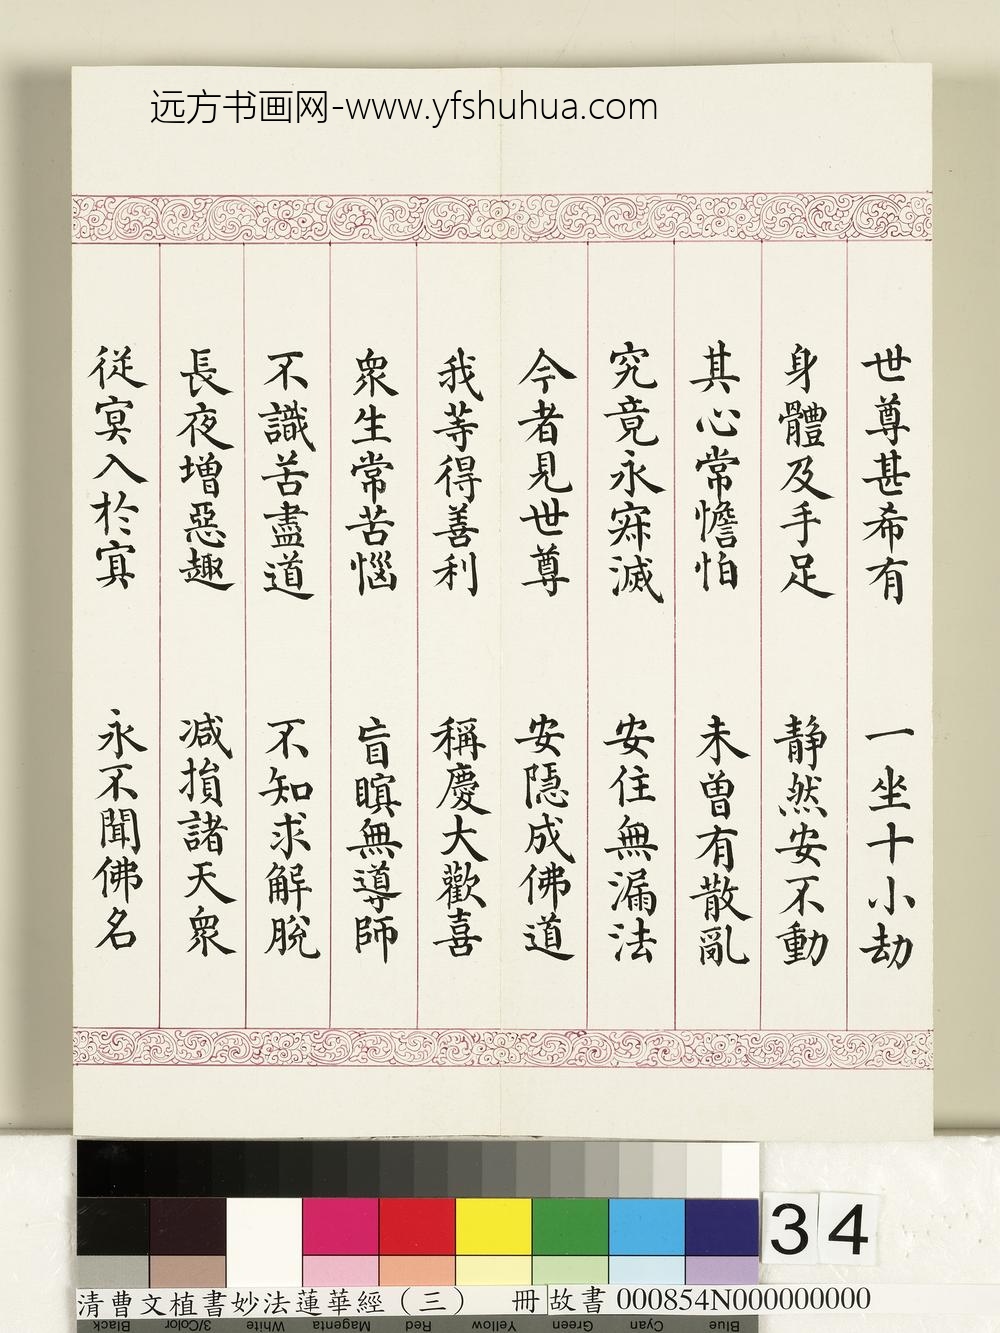 远方书画网-www.yfshuhua.com
世尊甚希有 一坐十小劫
身體及手足 静然安不動
其心常憺怕 未曽有散亂
究竟永寂滅 安住無漏法
今者見世尊 安隠成佛道
我等得善利 稱慶大歡喜
衆生常苦惱 盲瞑無導師
不識苦盡道 不知求解脫
長夜增惡趣 减損諸天衆
從冥入於冥 永不聞佛名
34
清曹文植書妙法蓮華經（三） 冊 故書 000854N000000000
Black 3/Color White Magenta Red Yellow Green Cyan Blue